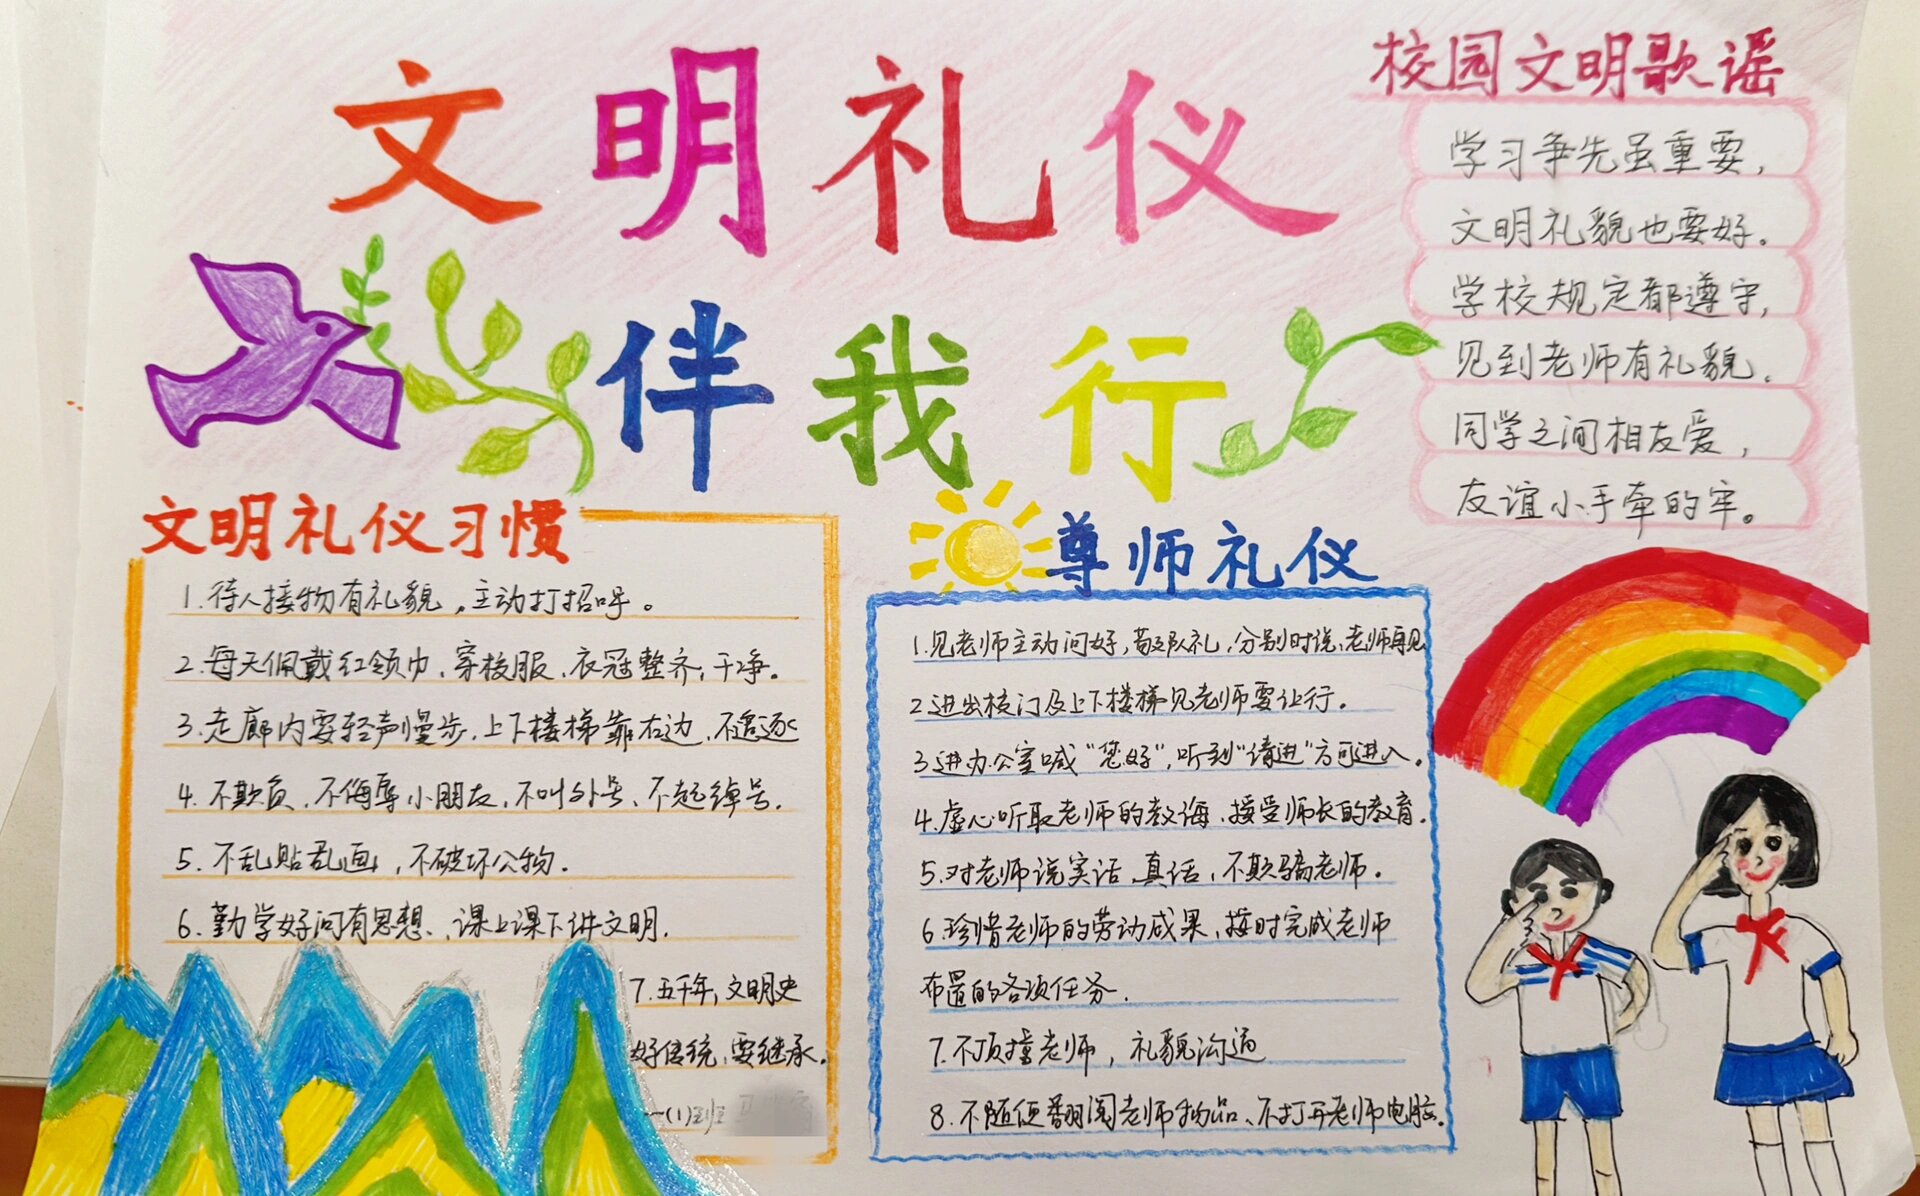 文明礼仪
伴我行
校园文明歌谣
学习争先虽重要,
文明礼貌也要好。
学校规定都遵守,
见到老师有礼貌。
同学之间相友爱,
友谊小手牵的牢。
文明礼仪习惯
1.待人接物有礼貌,主动打招呼。
2.每天佩戴红领巾、穿校服、衣冠整齐,干净。
3.走廊内要轻声慢步,上下楼梯靠右边,不追逐
4.不欺负、不侮辱小朋友,不叫外号、不起绰号.
5.不乱贴乱画,不破坏公物.
6.勤学好问有思想、课上课下讲文明.
7.五千年,文明史
好传统,要继承.
一(1)班
尊师礼仪
1.见老师主动问好,敬队礼,分别时说:老师再见
2.进出校门及上下楼梯见老师要让行。
3进办公室喊“您好”,听到“请进”方可进入。
4.虚心听取老师的教诲、接受师长的教育.
5.对老师说实话、真话,不欺骗老师。
6.珍惜老师的劳动成果,按时完成老师
布置的各项任务.
7.不顶撞老师,礼貌沟通
8.不随便翻阅老师物品、不打开老师电脑.